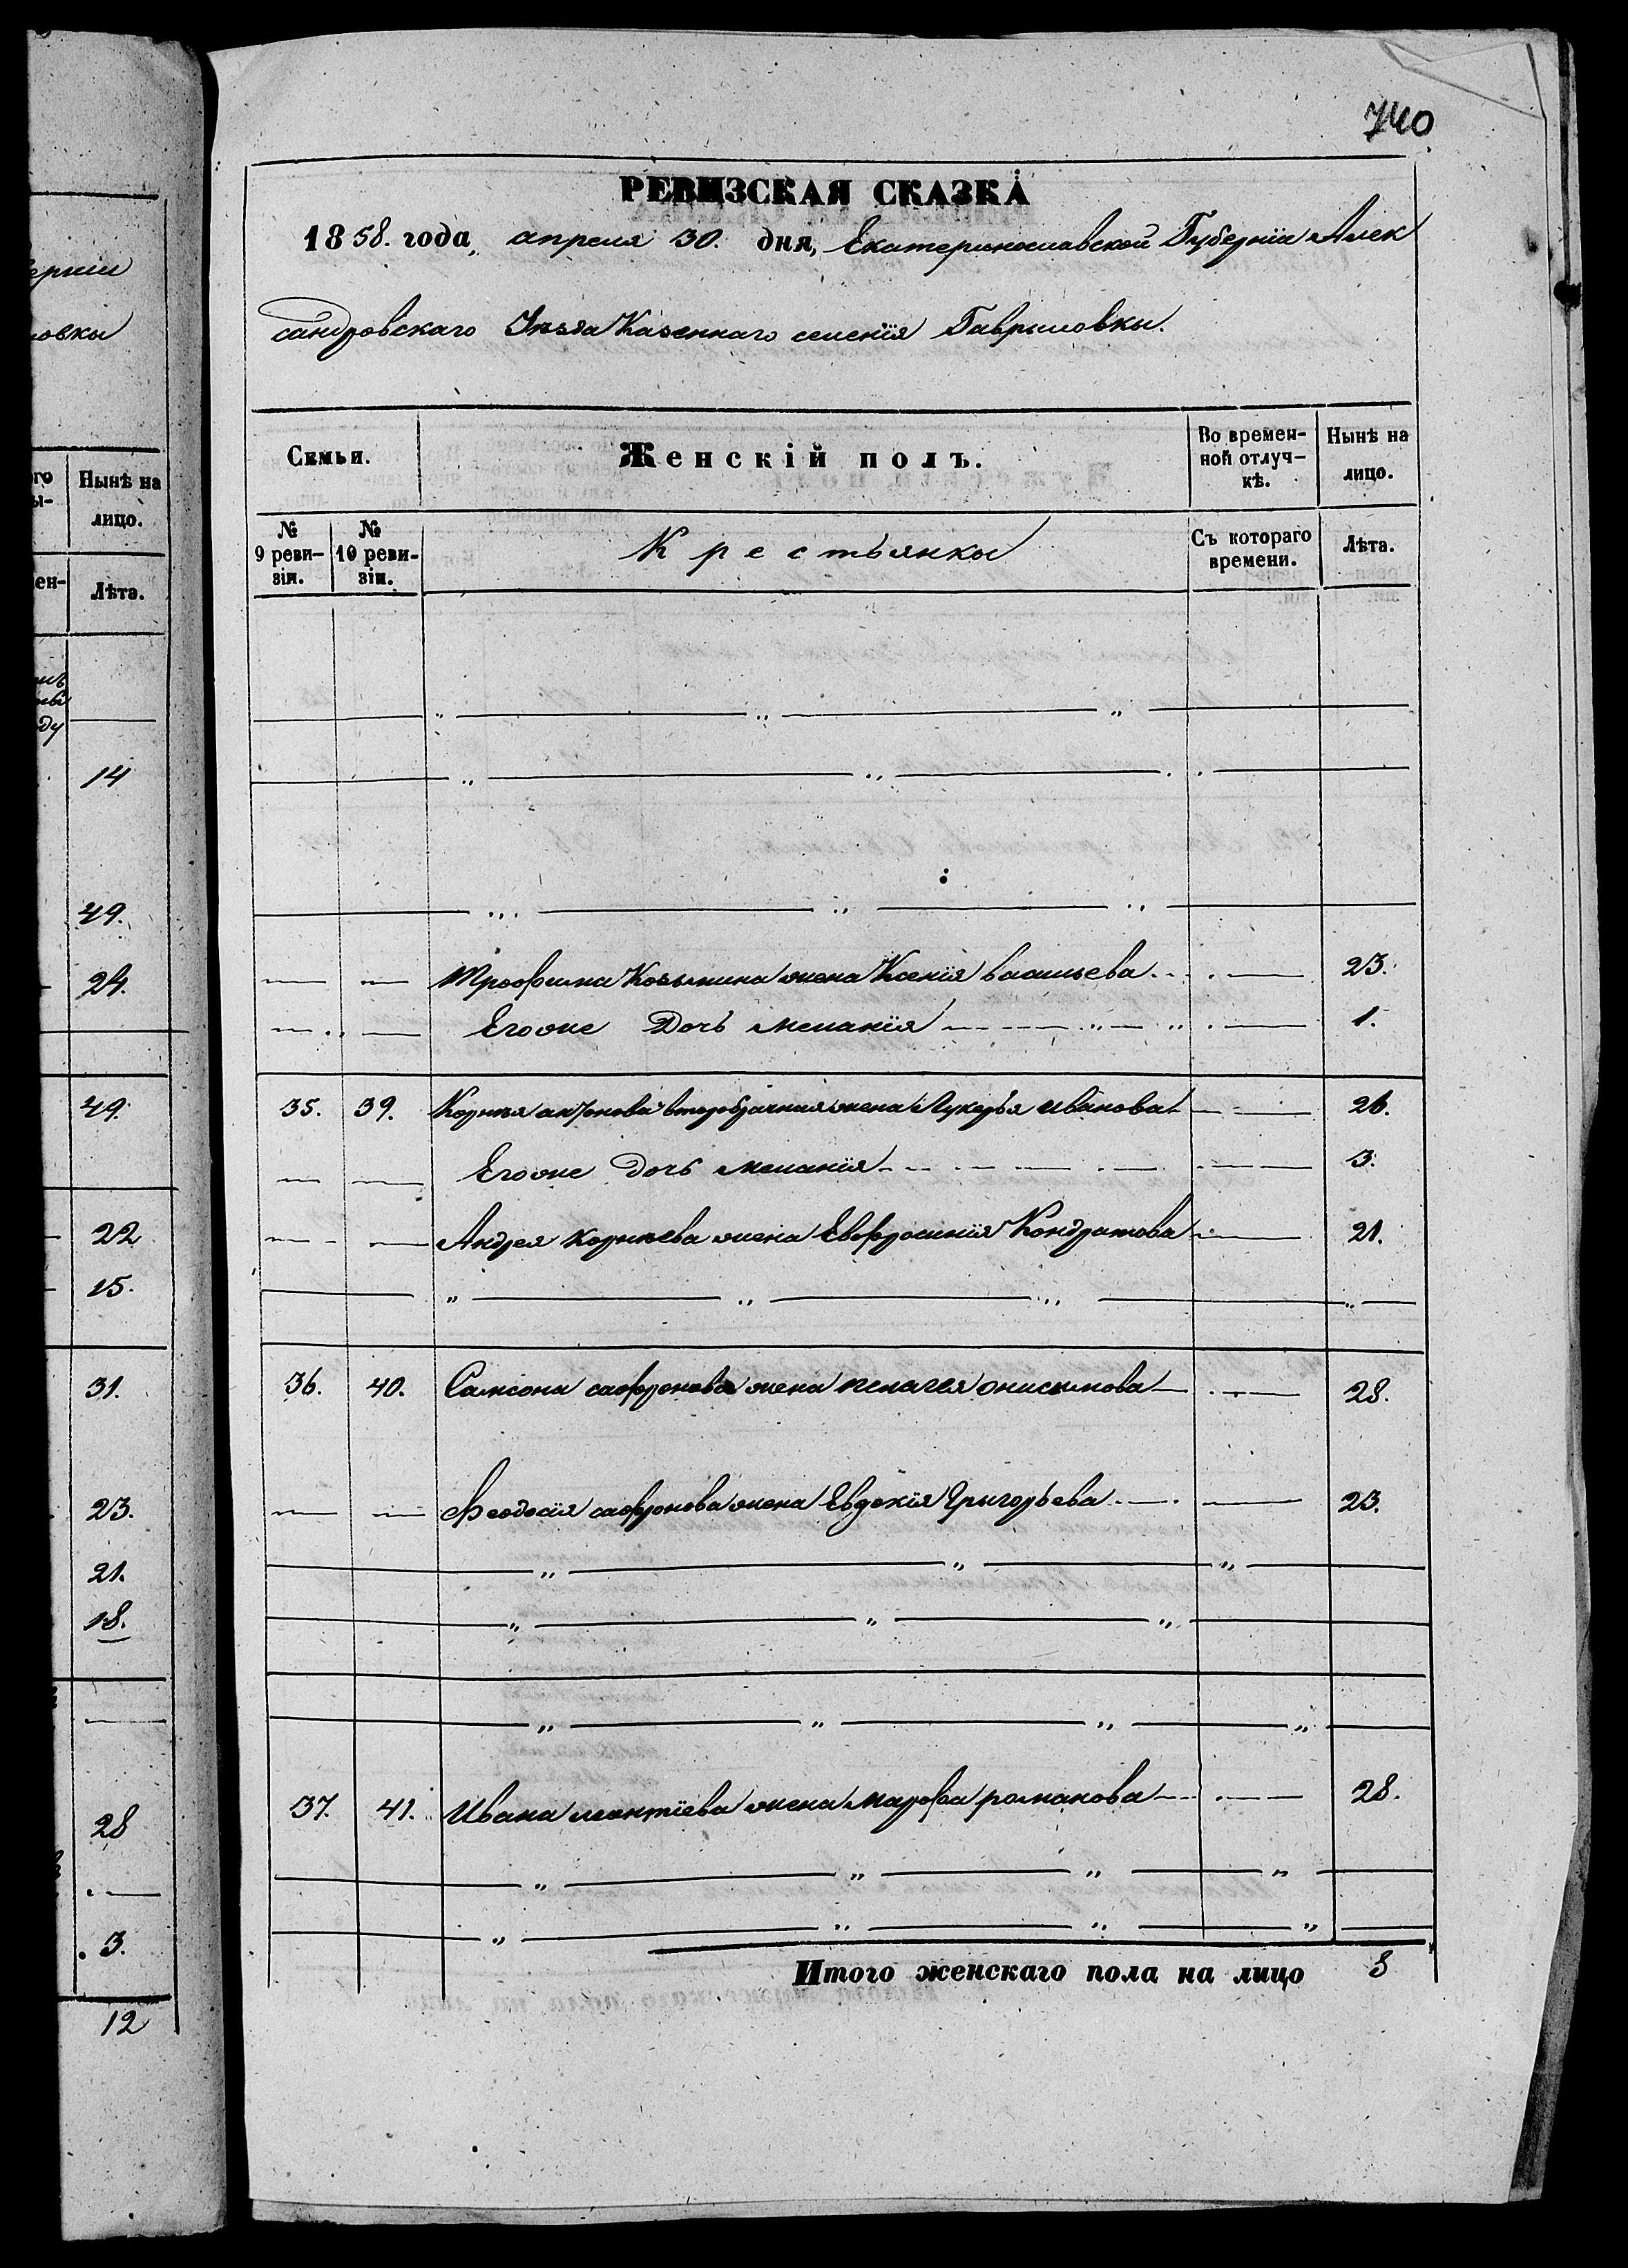 ерніи
овки
740
РЕВИЗСКАЯ СКАЗКА
1858. года, апреля 30. дня, Екатеринославской Губерніи Алек
сандровскаго Уезда Казеннаго селенія Гаврыловки.
Семьи.
Женскій полъ.
Во времен-
ной отлуч-
кѣ.
Нынѣ на
лицо.
№
9 реви-
зіи.
№
10 реви-
зіи.
Крестьянки
Съ котораго
времени.
Лѣта.
Трофима Козьмина жена Ксенія васильева 23.
Егоже Дочь меланія 1.
35. 39. Корнея антонова второбрачная жена Лукерья иванова 26.
Егоже дочь меланія 3.
Андрея корнеева жена Евфросинія Кондратова 21.
36. 40. Самсона сафронова жена пелагея онисимова 28.
Феодосія сафронова жена Евдокія Григорьева 23.
37. 41. Ивана леонтіева жена марфа романова 28.
Итого женскаго пола на лицо 8
Нынѣ на
лицо.
Лѣта.
14
49.
24.
49.
22
15.
31.
23.
21.
18.
28
3.
12